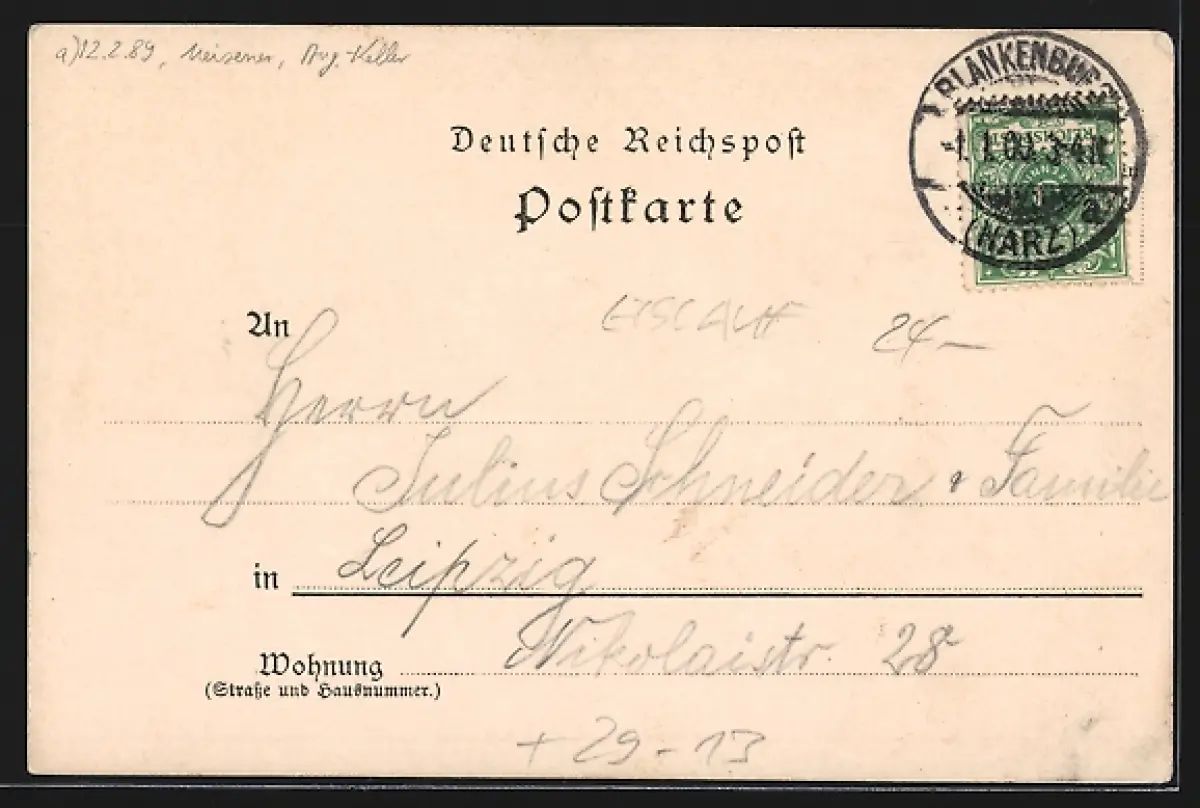 a) 12.2.89, Meisener, Aug. Keller
BLANKENBURG
1.1.00.3-4N.
a
(HARZ)
REICHSPOST
Deutsche Reichspost
Postkarte
24-
An
Herrn
Julius Schneider & Familie
in Leipzig
Nikolaistr. 28
Wohnung
(Straße und Hausnummer.)
+ 29-13